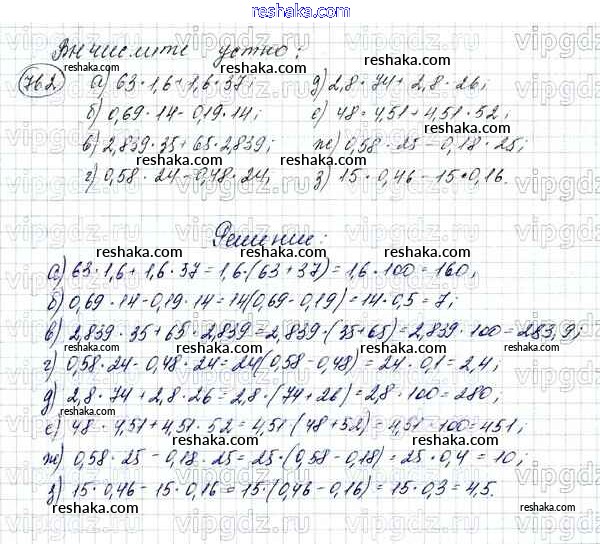 reshaka.com
Вычислите устно:
762. а) 63·1,6+1,6·37; д) 2,8·74+2,8·26;
б) 0,69·14-0,19·14; е) 48·4,51+4,51·52;
в) 2,839·35+65·2,839; ж) 0,58·25-0,18·25;
г) 0,58·24-0,48·24, з) 15·0,46-15·0,16.
Решение:
а) 63·1,6+1,6·37=1,6·(63+37)=1,6·100=160;
б) 0,69·14-0,19·14=14(0,69-0,19)=14·0,5=7;
в) 2,839·35+65·2,839=2,839·(35+65)=2,839·100=283,9;
г) 0,58·24-0,48·24=24(0,58-0,48)=24·0,1=2,4;
д) 2,8·74+2,8·26=2,8·(74+26)=2,8·100=280;
е) 48·4,51+4,51·52=4,51(48+52)=4,51·100=451;
ж) 0,58·25-0,18·25=25·(0,58-0,18)=25·0,4=10;
з) 15·0,46-15·0,16=15·(0,46-0,16)=15·0,3=4,5.
reshaka.com
vipgdz.ru